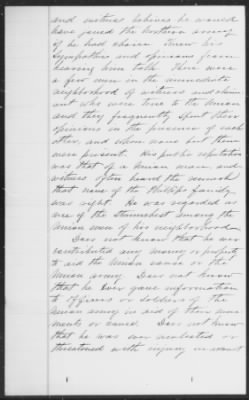 and witness believes he would
have joined the Northern army
if he had choice. Knew his
sympathies and opinions from
hearing him talk. There were
a few men in the immediate
neighborhood of witness and claim-
ant who were true to the Union
and they frequently spoke their
opinions in the presence of each
other, and when none but them
were present. His public reputation
was that of a Union man, and
witness often heard the remark
that none of the Phillips family
was right. He was regarded as
one of the staunchest among the
Union men of his neighborhood.
Does not know that he ever
contributed any money or property
to aid the Union cause or the
Union army. Does not know
that he ever gave information
to officers or soldiers of the
Union army in aid of their move-
ments or cause. Does not know
that he was ever molested or
threatened with injury on account